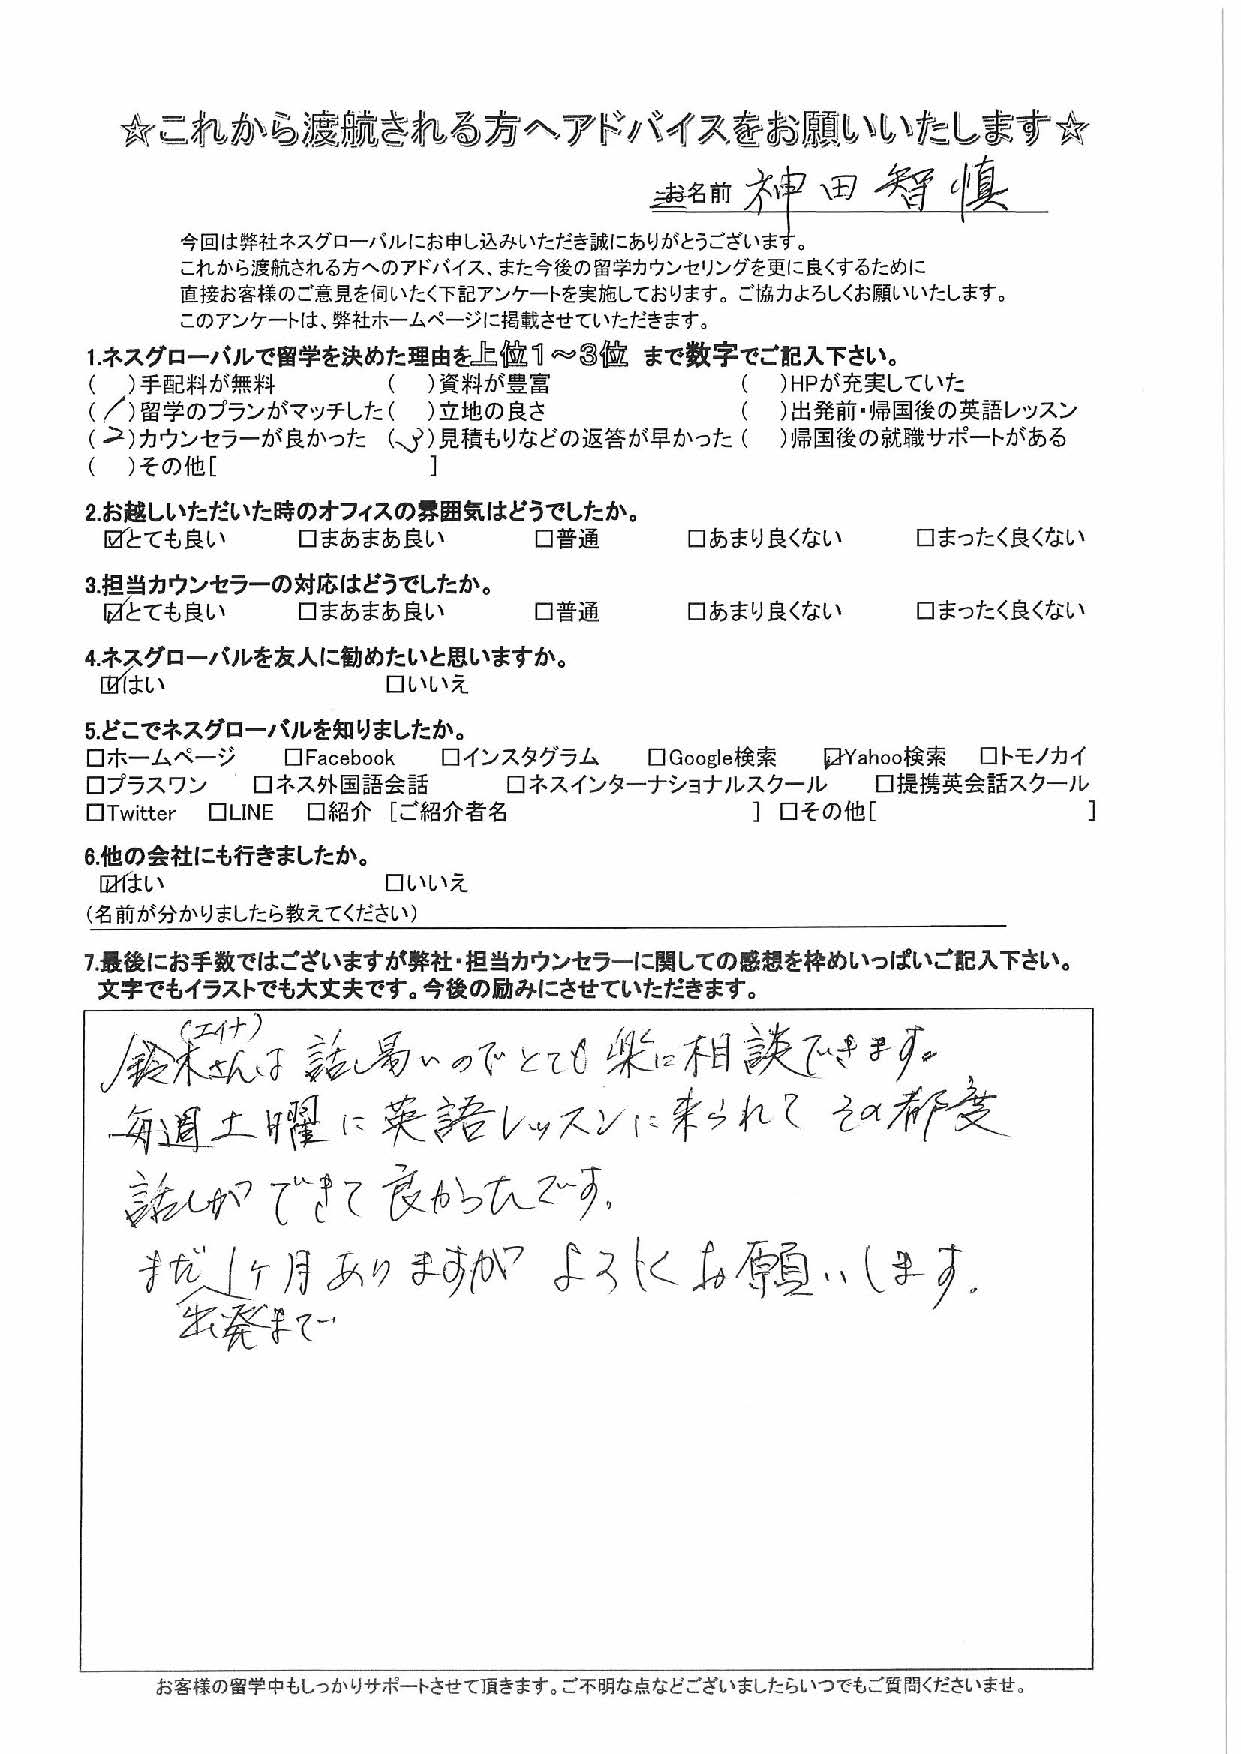 ☆これから渡航される方へアドバイスをお願いいたします☆
お名前 神田智慎
今回は弊社ネスグローバルにお申し込みいただき誠にありがとうございます。
これから渡航される方へのアドバイス、また今後の留学カウンセリングを更に良くするために
直接お客様のご意見を伺いたく下記アンケートを実施しております。ご協力よろしくお願いいたします。
このアンケートは、弊社ホームページに掲載させていただきます。
1.ネスグローバルで留学を決めた理由を上位1～3位 まで数字でご記入下さい。
( )手配料が無料 ( )資料が豊富 ( )HPが充実していた
(1)留学のプランがマッチした( )立地の良さ ( )出発前・帰国後の英語レッスン
(2)カウンセラーが良かった (3)見積もりなどの返答が早かった ( )帰国後の就職サポートがある
( )その他[ ]
2.お越しいただいた時のオフィスの雰囲気はどうでしたか。
☑とても良い □まあまあ良い □普通 □あまり良くない □まったく良くない
3.担当カウンセラーの対応はどうでしたか。
☑とても良い □まあまあ良い □普通 □あまり良くない □まったく良くない
4.ネスグローバルを友人に勧めたいと思いますか。
☑はい □いいえ
5.どこでネスグローバルを知りましたか。
□ホームページ □Facebook □インスタグラム □Google検索 ☑Yahoo検索 □トモノカイ
□プラスワン □ネス外国語会話 □ネスインターナショナルスクール □提携英会話スクール
□Twitter □LINE □紹介 [ご紹介者名 ] □その他[ ]
6.他の会社にも行きましたか。
☑はい □いいえ
(名前が分かりましたら教えてください)
7.最後にお手数ではございますが弊社・担当カウンセラーに関しての感想を枠めいっぱいご記入下さい。
文字でもイラストでも大丈夫です。今後の励みにさせていただきます。
(エイナ)
鈴木さんは話し易いのでとても楽に相談できます。
毎週土曜に英語レッスンに来られてその都度
話しができて良かったです。
まだ1ヶ月ありますがよろしくお願いします。
出発まで
お客様の留学中もしっかりサポートさせて頂きます。ご不明な点などございましたらいつでもご質問くださいませ。